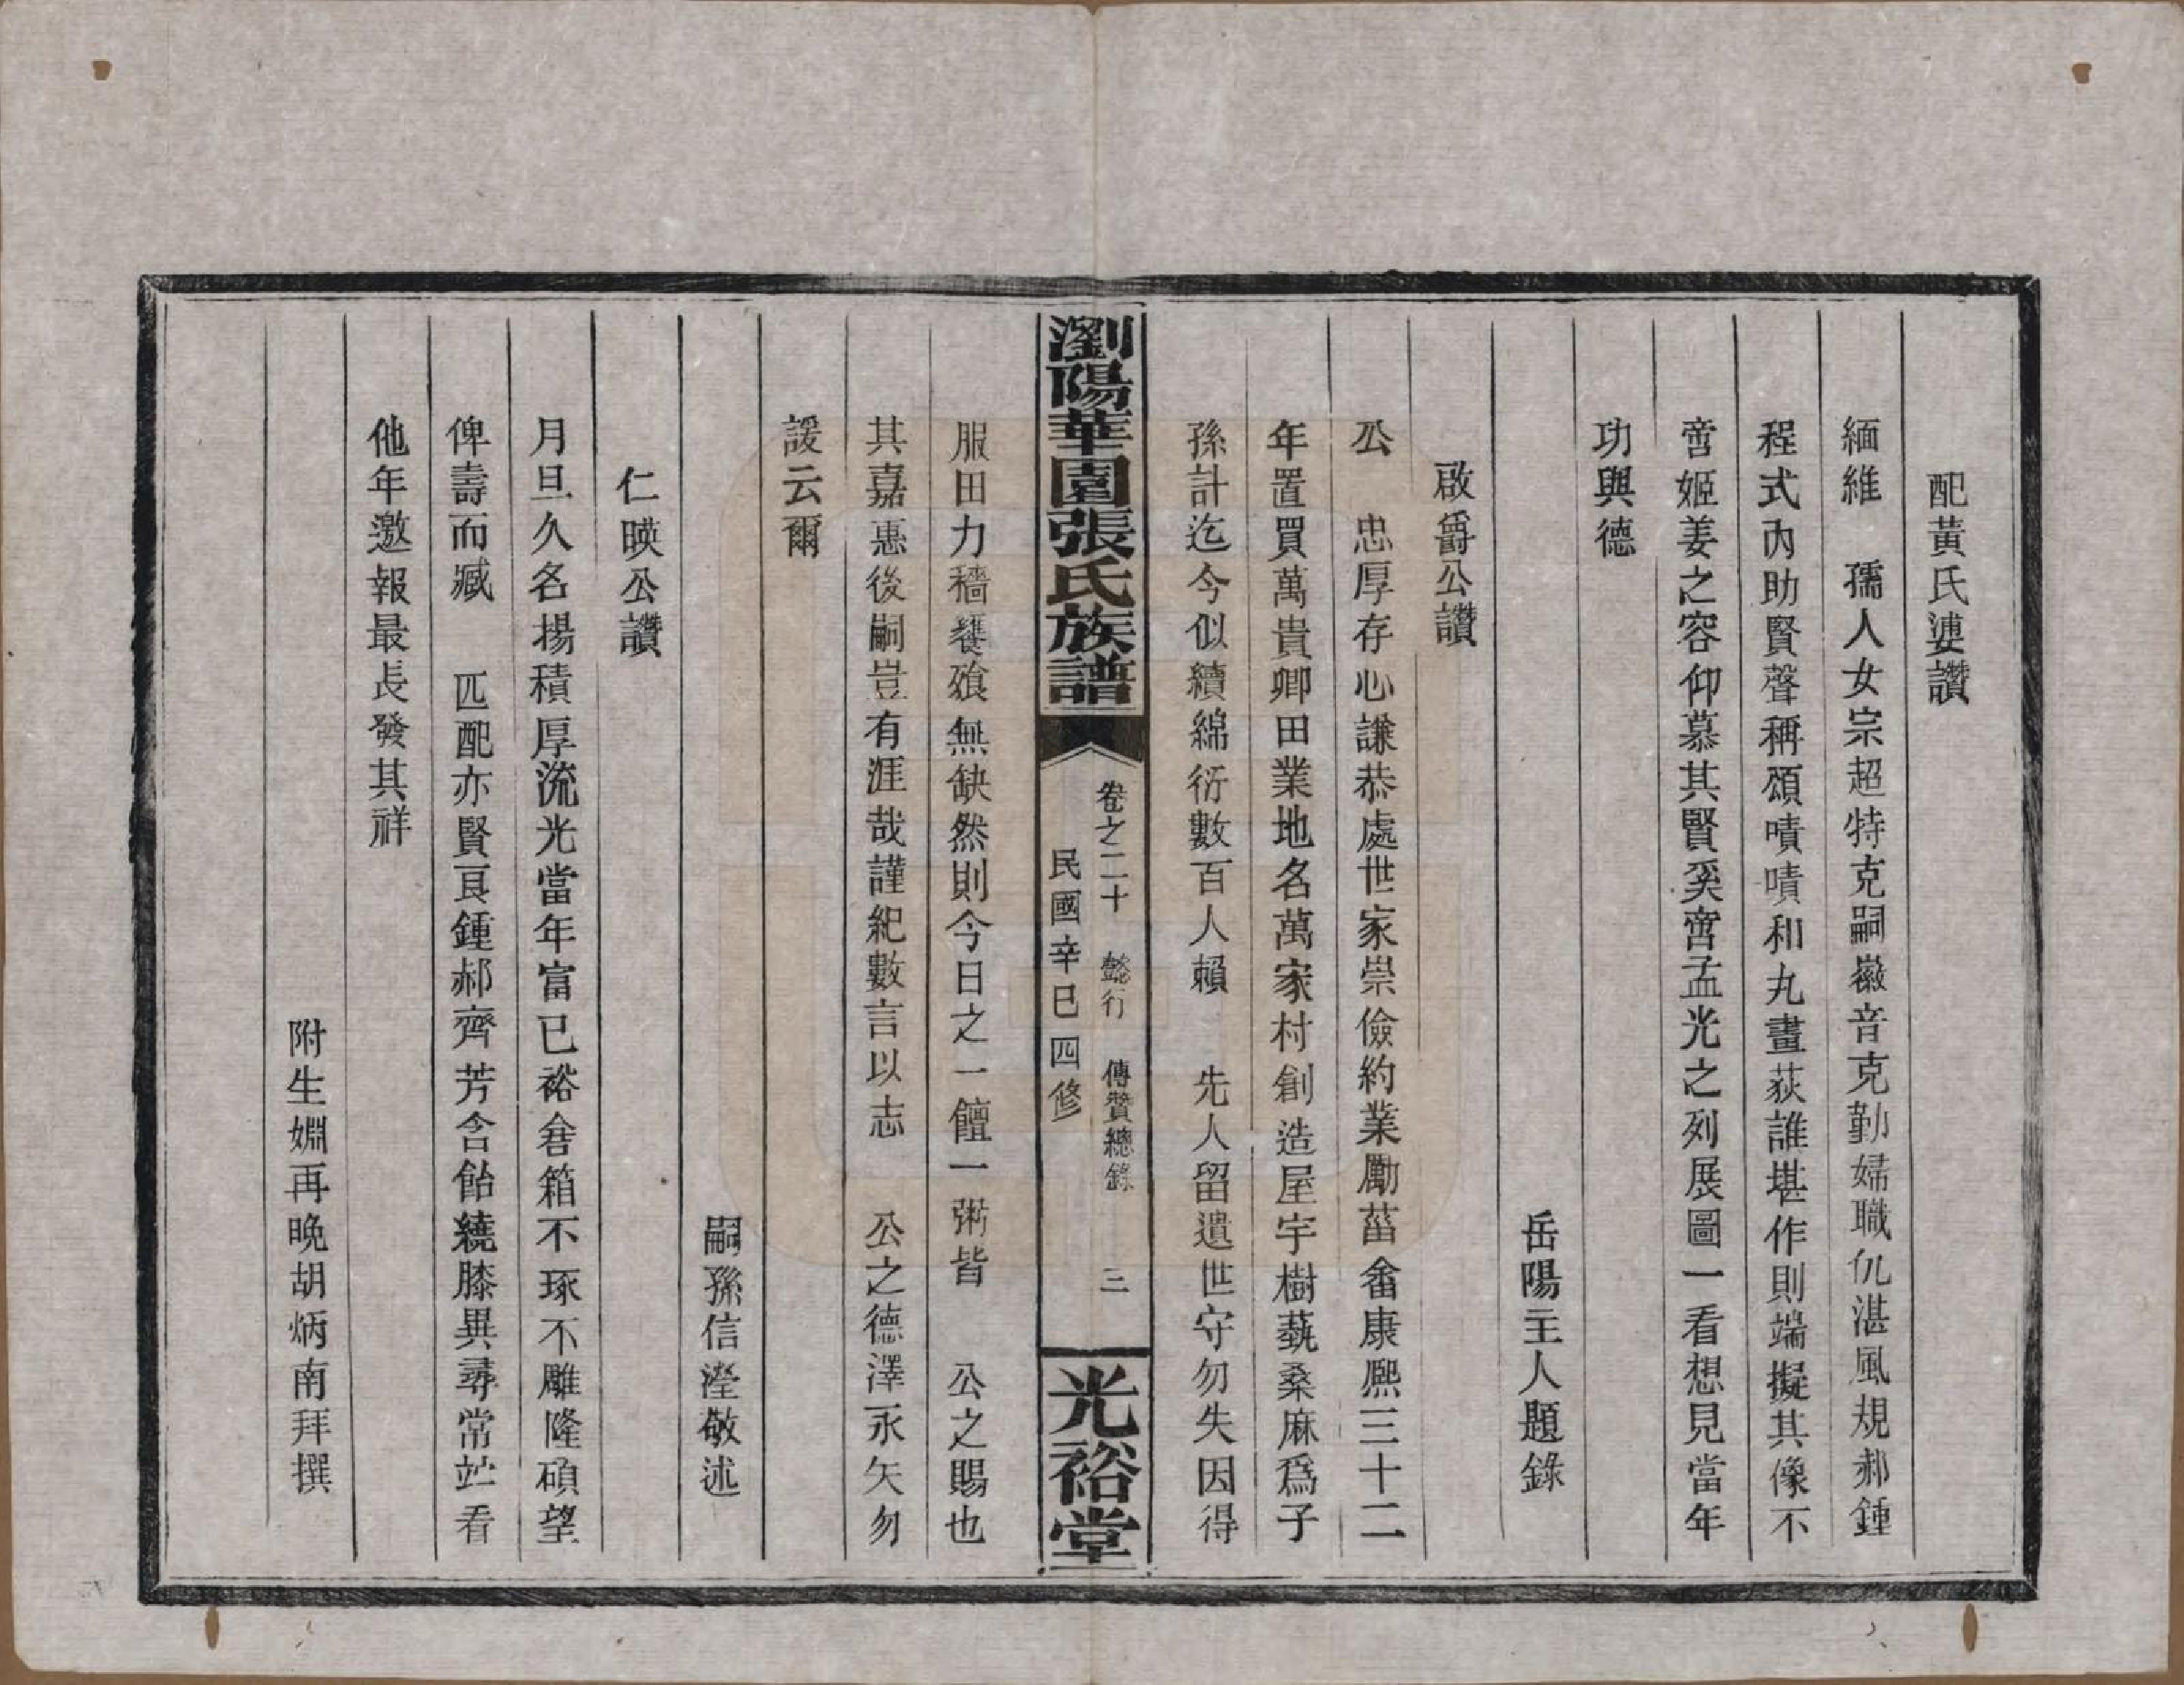 配黃氏婆讚
緬維　孺人女宗超特克嗣徽音克勤婦職仉湛風規郝鍾
程式內助賢聲稱頌嘖嘖和丸畫荻誰堪作則端擬其像不
啻姬姜之容仰慕其賢奚啻孟光之列展圖一看想見當年
功與德
岳陽主人題錄
啟爵公讚
公　忠厚存心謙恭處世家崇儉約業勵菑畬康熙三十二
年置買萬貴卿田業地名萬家村創造屋宇樹蓺桑麻爲子
孫計迄今似續綿衍數百人賴　先人留遺世守勿失因得
瀏陽華園張氏族譜
卷之二十　懿行　傳贊總錄　三
民國辛巳四修
光裕堂
服田力穡饔飧無缺然則今日之一饘一粥皆　公之賜也
其嘉惠後嗣豈有涯哉謹紀數言以志　公之德澤永矢勿
諼云爾
嗣孫信瀅敬述
仁暎公讚
月旦久名揚積厚流光當年富已裕倉箱不琢不雕隆碩望
俾壽而臧　匹配亦賢良鍾郝齊芳含飴繞膝異尋常竚看
他年邀報最長發其祥
附生姻再晚胡炳南拜撰